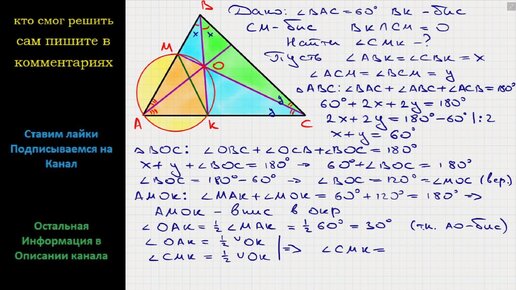 кто смог решить
сам пишите в
комментариях
Ставим лайки
Подписываемся на
Канал
Остальная
Информация в
Описании канала
B
x x
M
O
A
K
C
y
y
Дано: ∠BAC=60° BK -бис
CM-бис BK∩CM = O
Найти ∠CMK -?
Пусть ∠ABK=∠CBK = x
∠ACM=∠BCM = y
△ABC: ∠BAC+∠ABC+∠ACB=180°
60°+2x+2y=180°
2x+2y=180°-60° |:2
x+y = 60°
△BOC: ∠OBC+∠OCB+∠BOC=180°
x+y+∠BOC=180° → 60°+∠BOC = 180°
∠BOC = 180°-60° → ∠BOC = 120°=∠MOK (вер.)
AMOK: ∠MAK+∠MOK = 60°+120° = 180° →
AMOK - впис в окр
∠OAK = ½∠MAK = ½ 60° = 30° (тк. AO-бис)
∠OAK = ½ ◡OK
∠CMK = ½ ◡OK |⇒ ∠CMK =